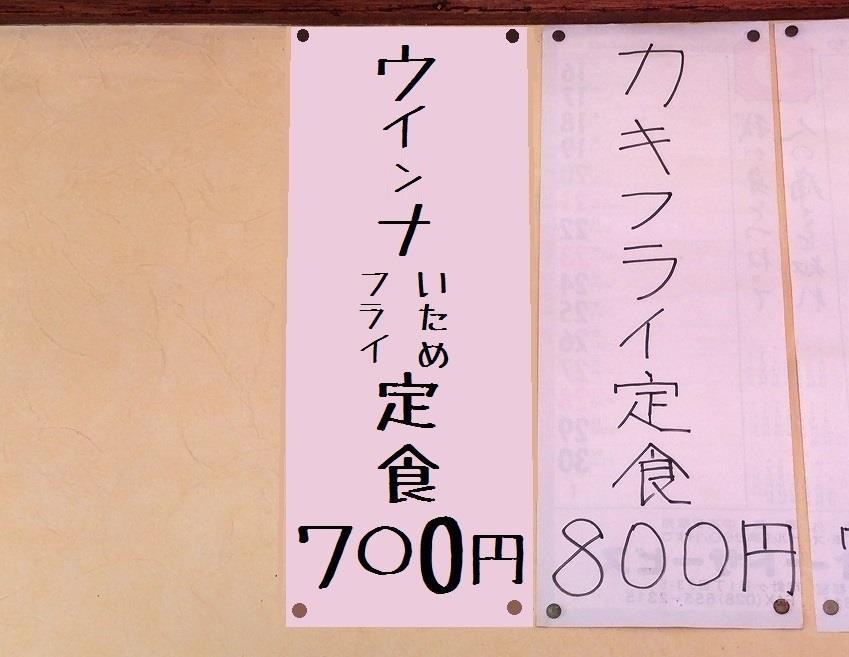 ウインナ
いため
フライ
定食
700円
カキフライ定食
800円